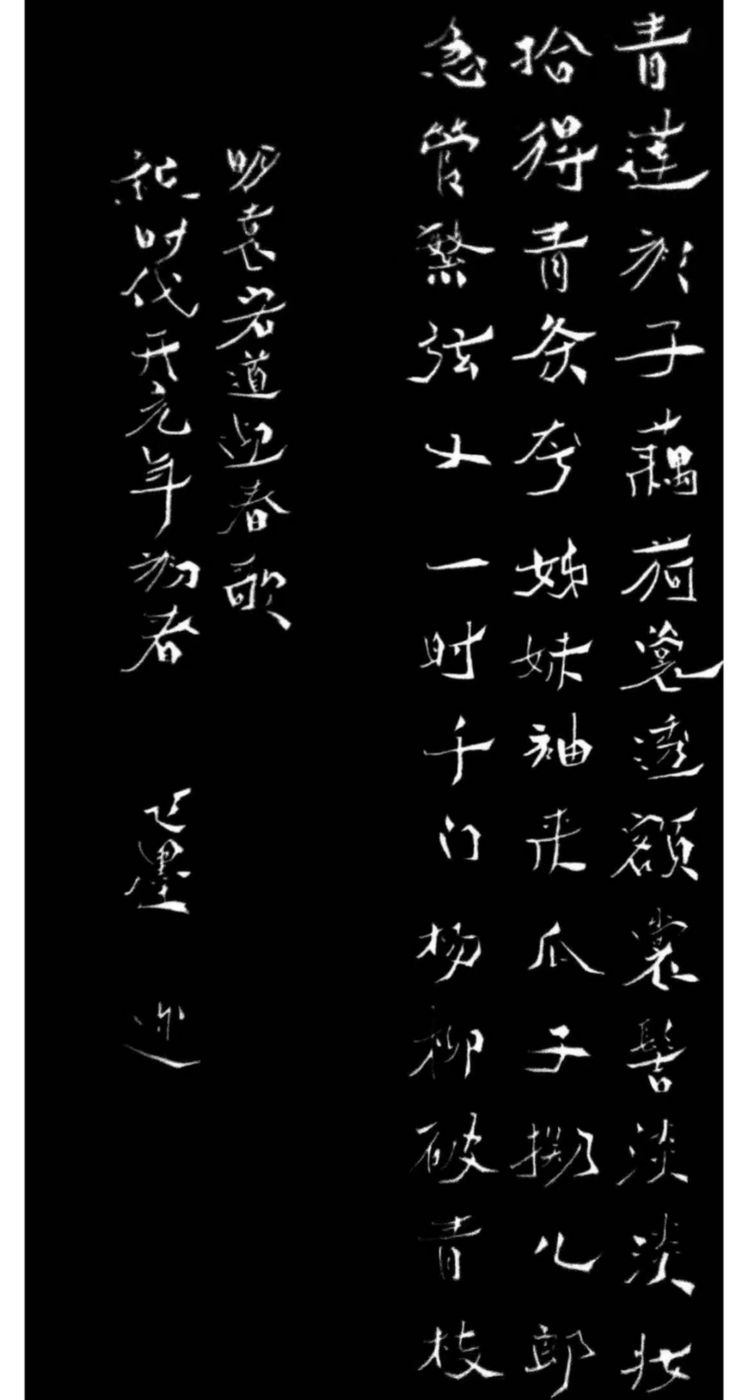 青莲衫子藕荷裳透额裳髻淡淡妆
拾得青条夸姊妹袖来瓜子掷儿郎
急管繁弦又一时千门杨柳破青枝
明袁宏道迎春歌
新时代开元年初春 墨 迎